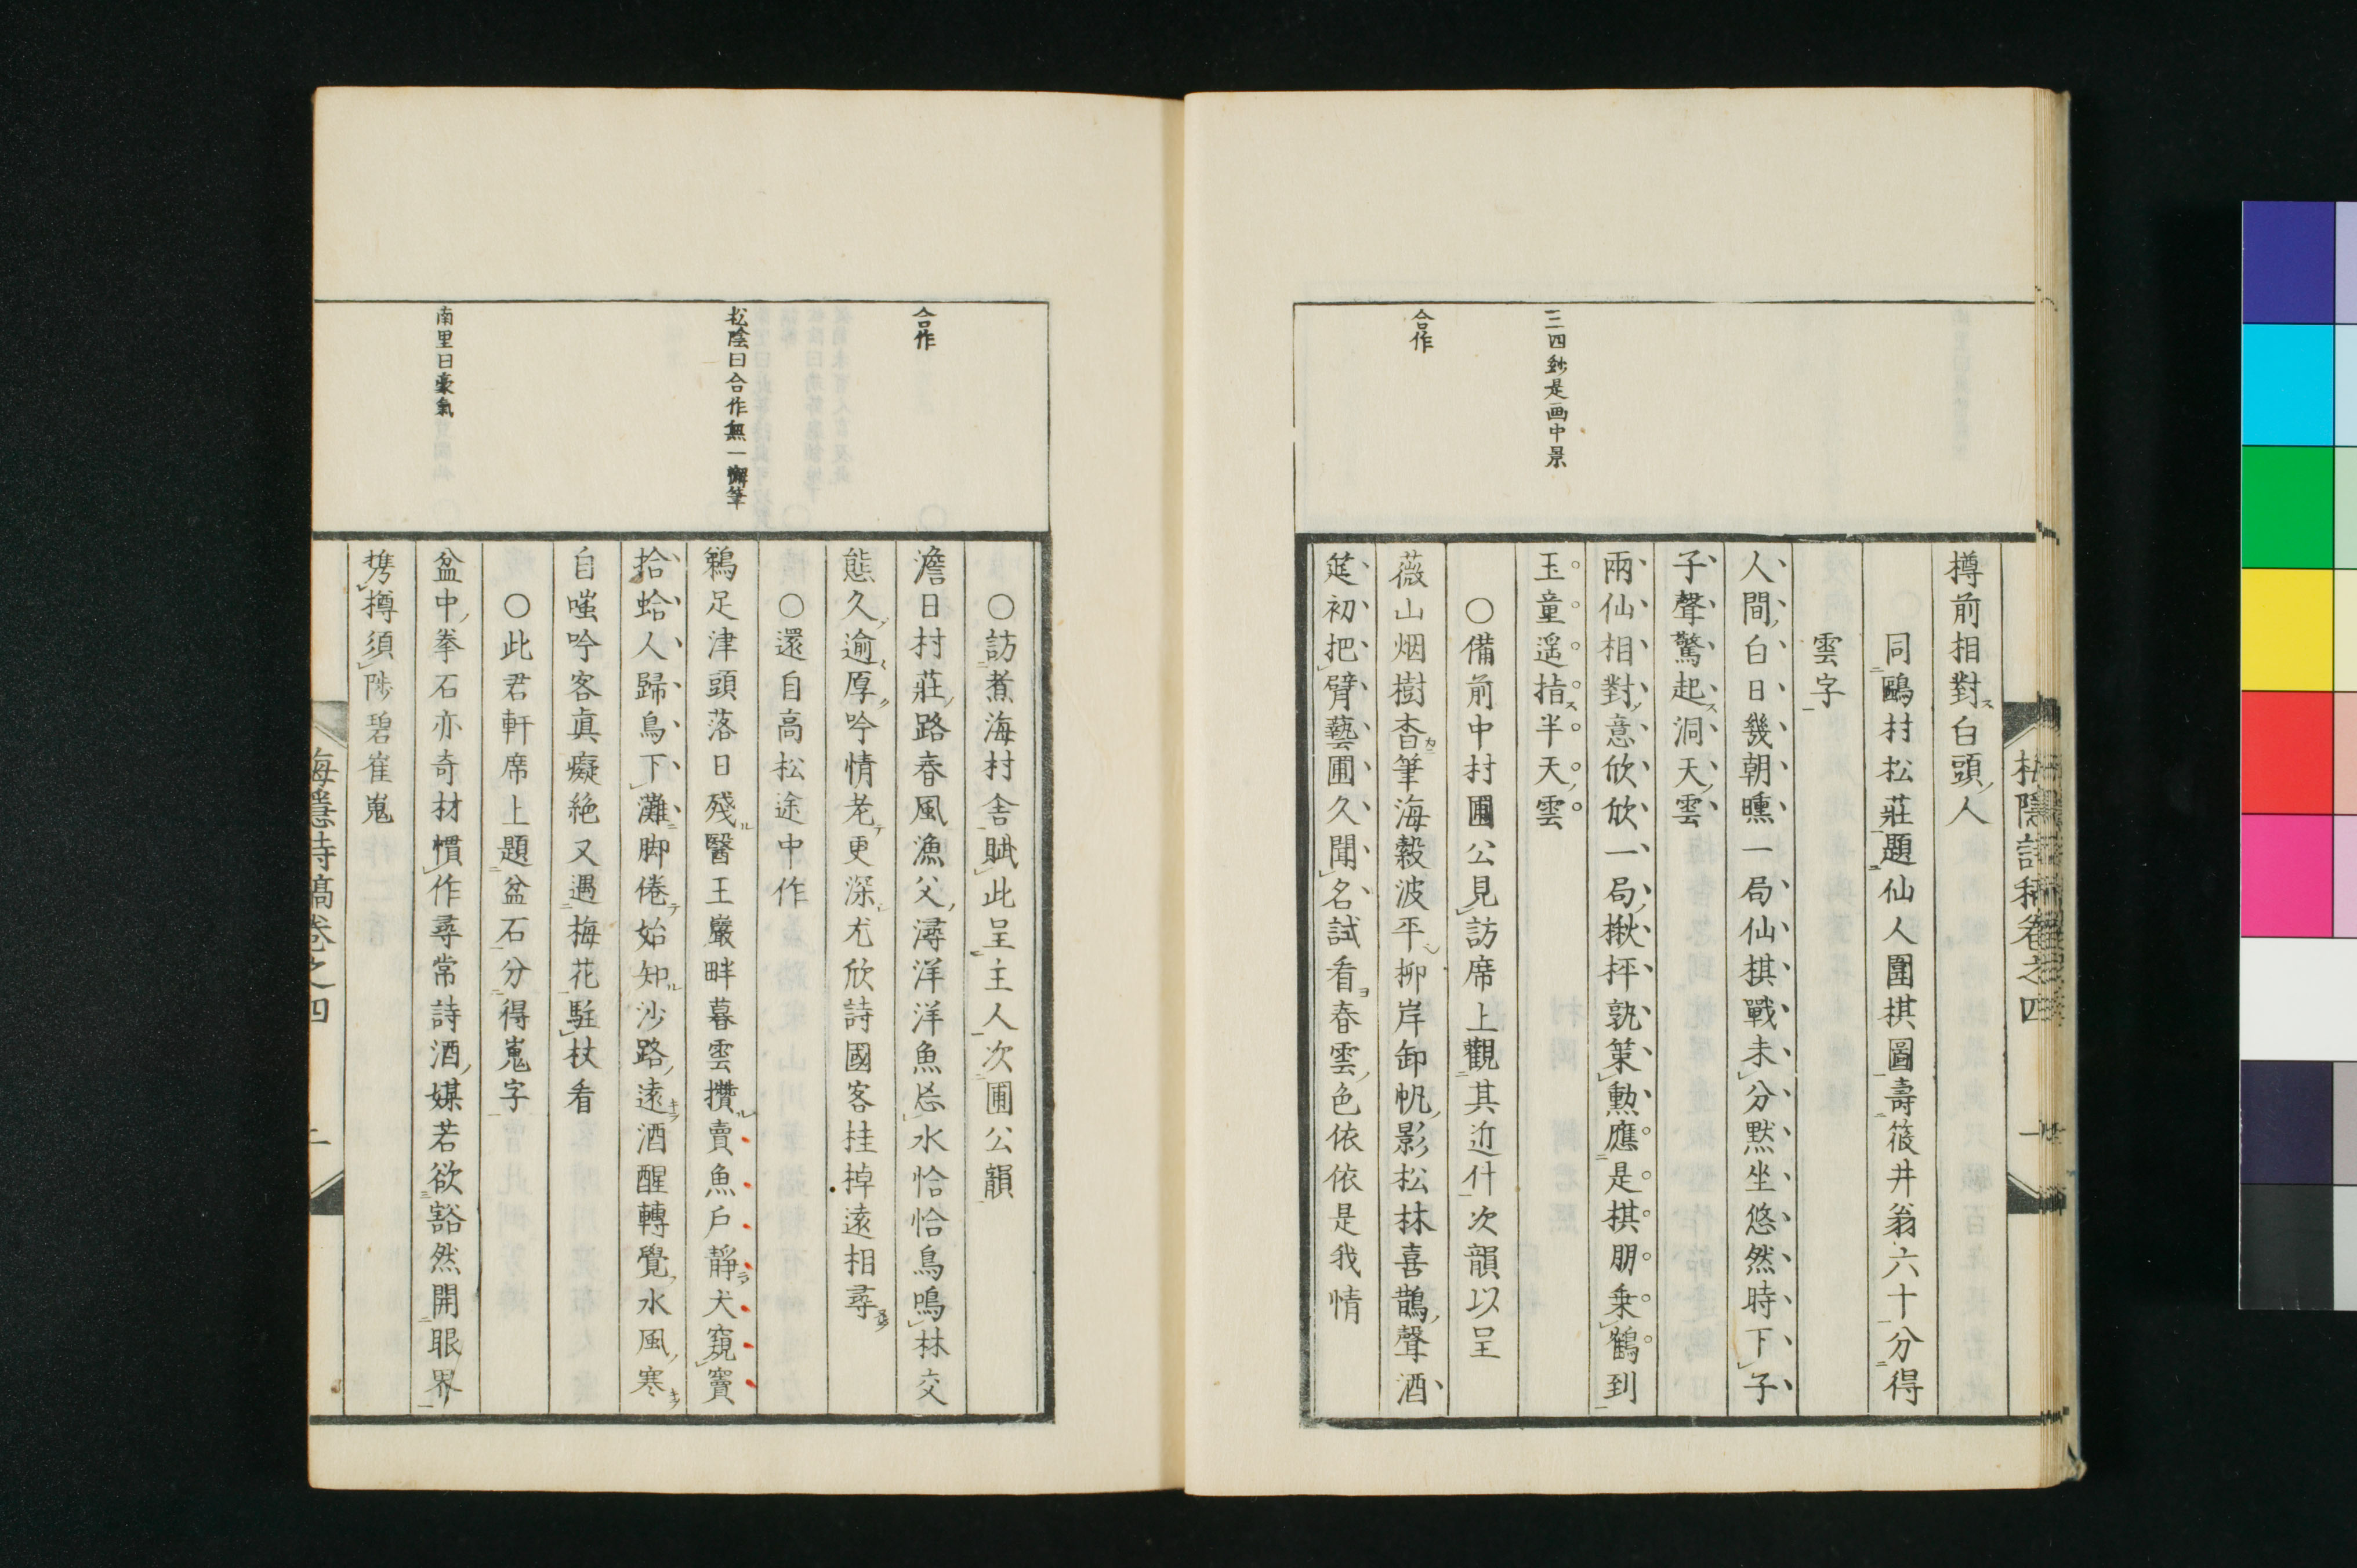 樽前相對白頭人
同鷗村松莊題仙人圍棋圖壽筱井翁六十分得
雲字
人間白日幾朝曛一局仙棋戰未分默坐悠然時下子
子聲驚起洞天雲
兩仙相對意欣欣一局楸枰孰策勲應是棋朋乗鶴到
玉童遥指半天雲
三四鈔是画中景
○備前中村圃公見訪席上觀其近什次韻以呈
薇山烟樹杳筆海縠波平柳岸卸帆影松林喜鵲聲酒
筵初把臂藝圃久聞名試看春雲色依依是我情
合作
○訪煮海村舎賦此呈主人次圃公韻
澹日村莊路春風漁父潯洋洋魚忘水恰恰鳥鳴林交
態久逾厚吟情老更深尤欣詩國客挂棹遠相尋
合作
○還自高松途中作
鶺足津頭落日殘醫王巖畔暮雲攢賣魚戶靜犬窺竇
拾蛤人歸鳥下灘脚倦始知沙路遠酒醒轉覺水風寒
自嗤吟客眞癡絶又遇梅花駐杖看
松陰曰合作無一懈筆
○此君軒席上題盆石分得嵬字
盆中拳石亦奇材慣作尋常詩酒媒若欲豁然開眼界
携樽須陟碧崔嵬
南里曰豪氣
梅隱詩稿卷之四